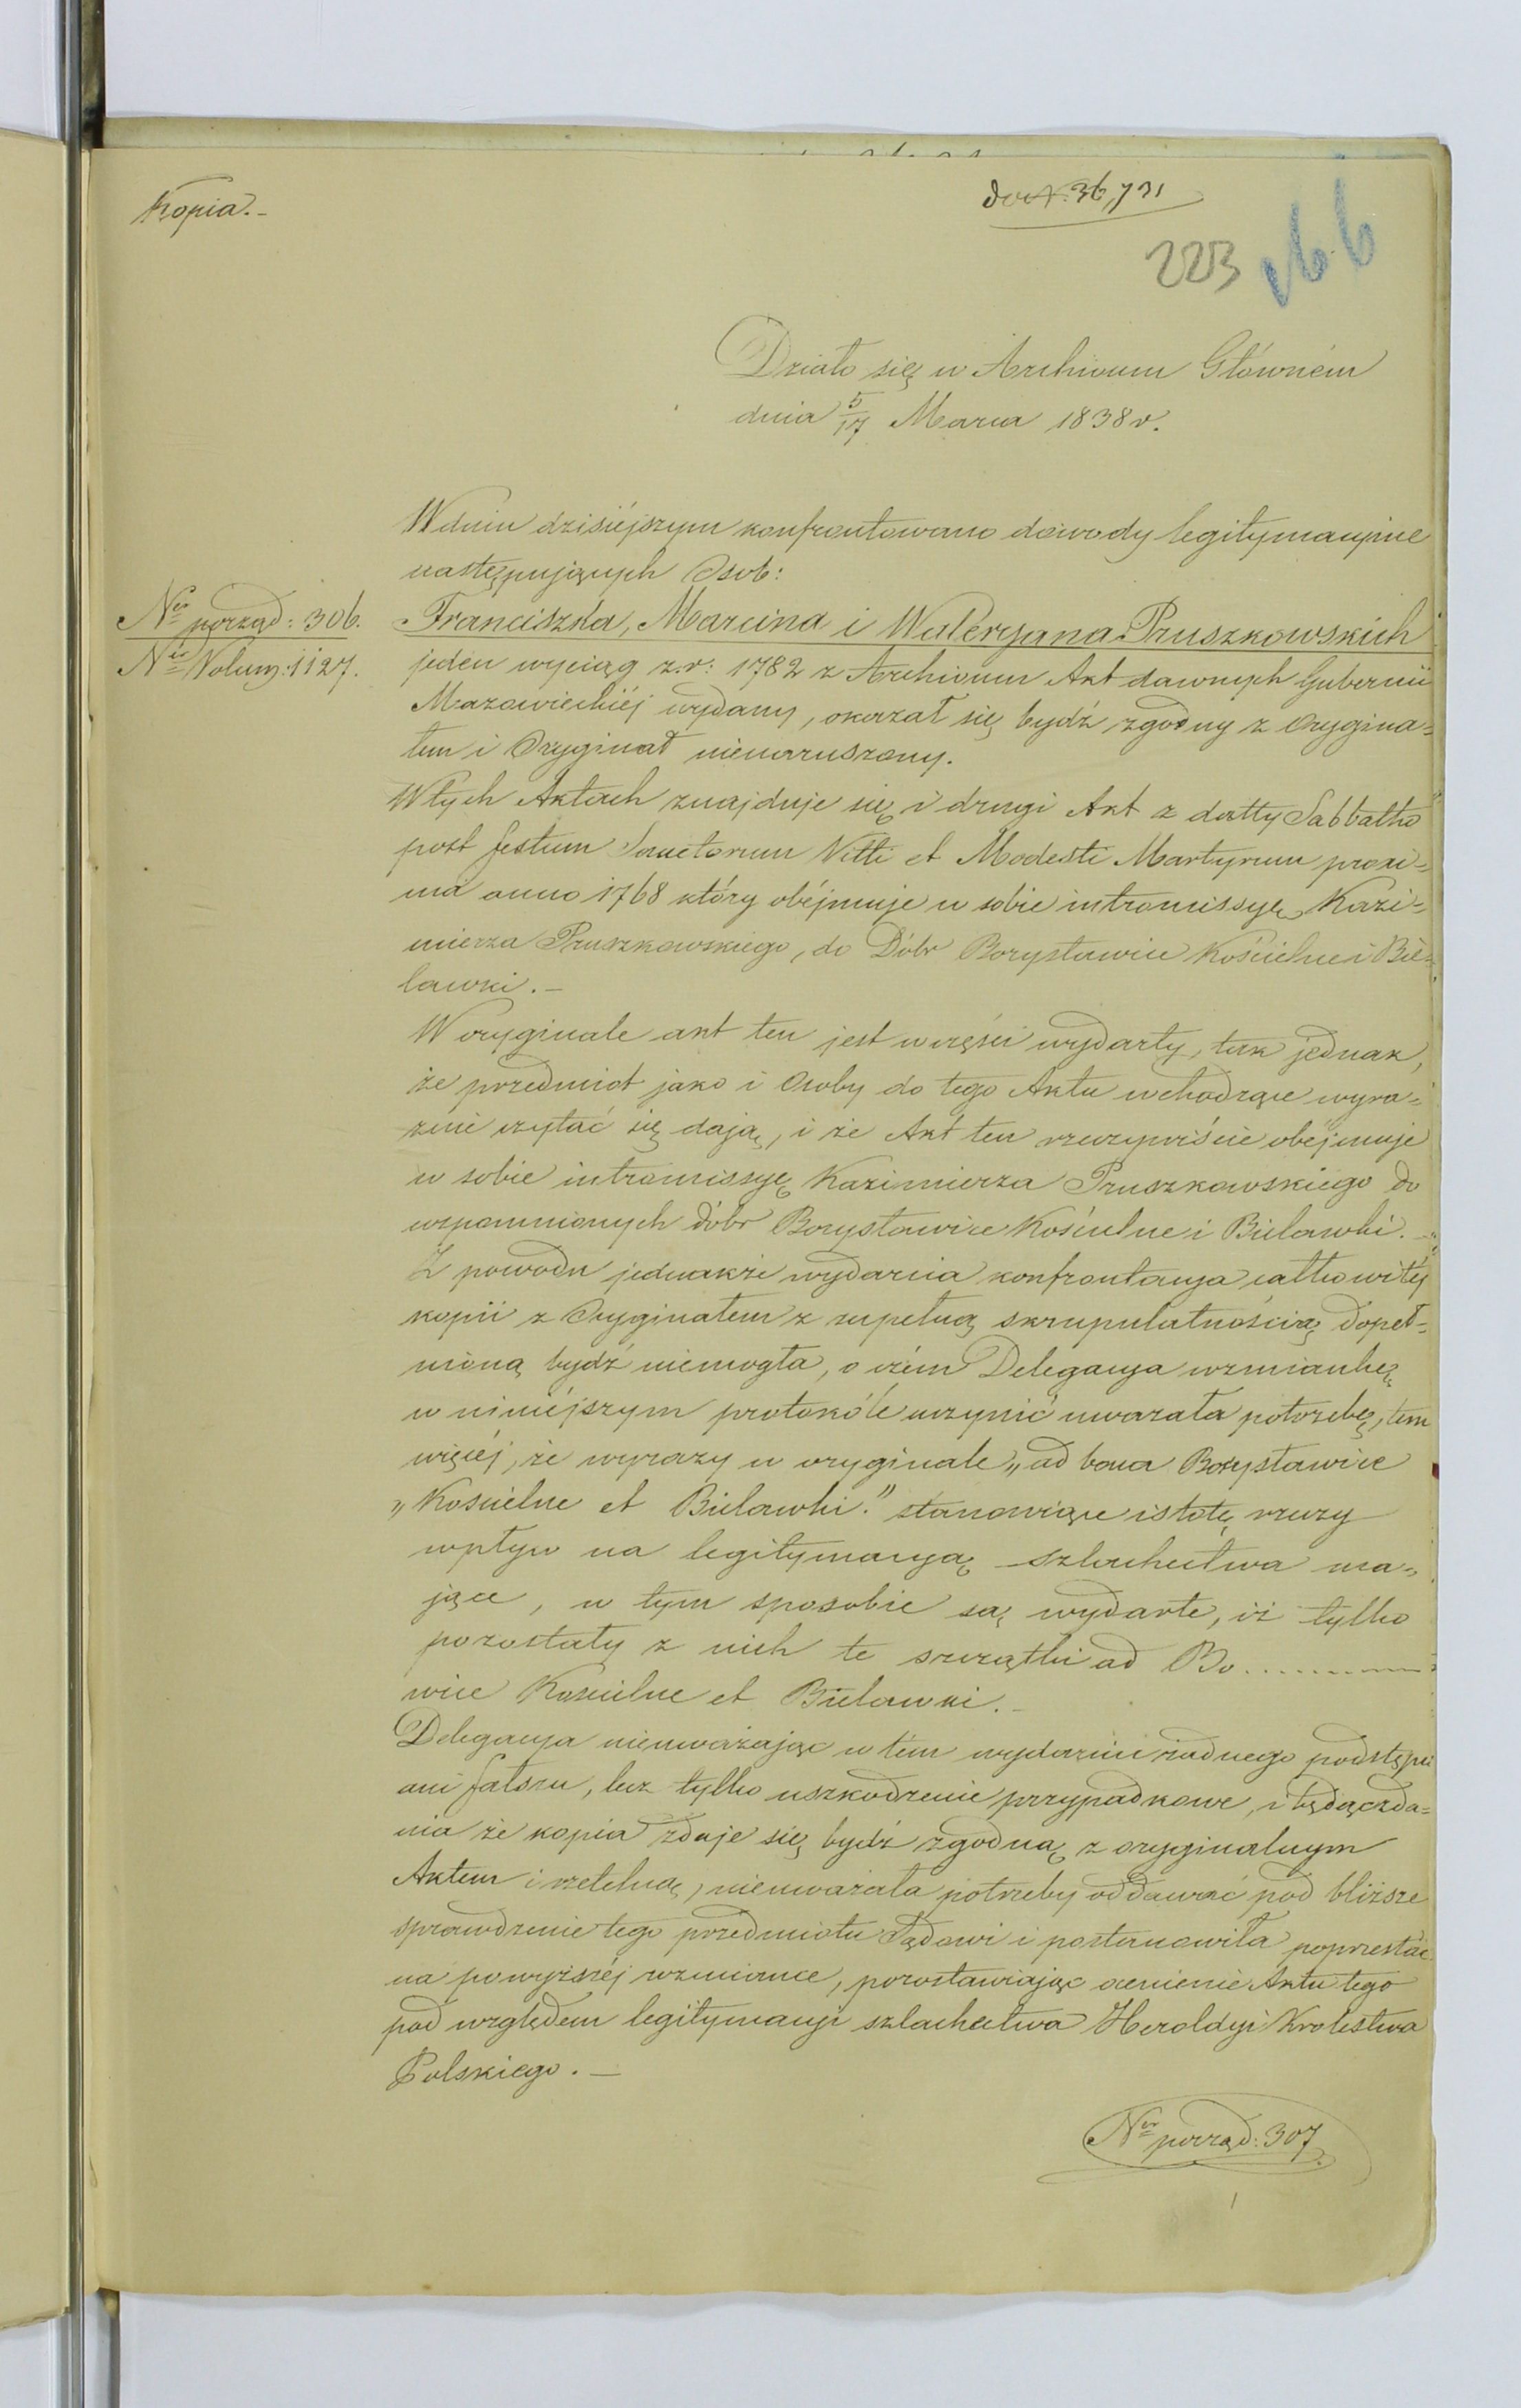 Kopia.-
do N. 36,731
223
66
Działo się w Archivum Główném
dnia 5/17 Marca 1838 r.
W dniu dzisiéjszym konfrontowano dowody legitymacyine
następujących Osob:
Nr porząd: 306.
Franciszka, Marcina i Waleryana Pruszkowskich
Nr Volum: 1127.
jeden wyciąg z r: 1782 z Archivum Akt dawnych Gubernii
Mazowieckiéj wydany, okazał się bydź zgodny z Orygina=
łem i Oryginał nienaruszony.
W tych Aktach znajduje się i drugi Akt z datty Sabbatho
post festum Sanctorum Vitti et Modesti Martyrum proxi=
ma anno 1768 który obéjmuje w sobie intromissyę Kazi=
mierza Pruszkowskiego, do Dóbr Borysławice Kościelne i Bie=
lawki.-
W oryginale akt ten jest w części wydarty, tak jednak,
że przedmiot jako i Osoby do tego Aktu wchodzące wyra=
znie czytać się dają, i że Akt ten rzeczywiście obéjmuje
w sobie intromissyę Kazimierza Pruszkowskiego do
wspomnionych dóbr Borysławice Kościelne i Bielawki.-
Z powodu jednakże wydarcia konfrontacya całkowitéj
kopii z Oryginałem z zupełną skrupulatnością dopeł=
nioną bydź niemogła, o czém Delegacya wzmiankę
w niniéjszym protokóle uczynić uważała potrzebę, tem
więcéj, że wyrazy w oryginale „ad bona Borysławice
„Koscielne et Bielawki." stanowiące istotę rzeczy
wpływ na legitymacyą szlachectwa ma=
jące, w tym sposobie są wydarte, iż tylko
pozostały z nich te szczątki ad Bo...........
wice Koscielne et Bielawki.-
Delegacya nieuważając w tém wydarciu żadnego podstępu
ani fałszu, lecz tylko uszkodzenie przypadkowe, i będąc zda=
nia że kopia zdaje się bydź zgodną z oryginalnym
Aktem i rzetelną, nieuważała potrzeby oddawać pod bliższe
sprawdzenie tego przedmiotu Sądowi i postanowiła poprzestać
na powyższéj wzmiance, pozostawiając ocenienie Aktu tego
pod względem legitymacyi szlachectwa Heroldyi Krolestwa
Polskiego.-
Nr porząd: 307